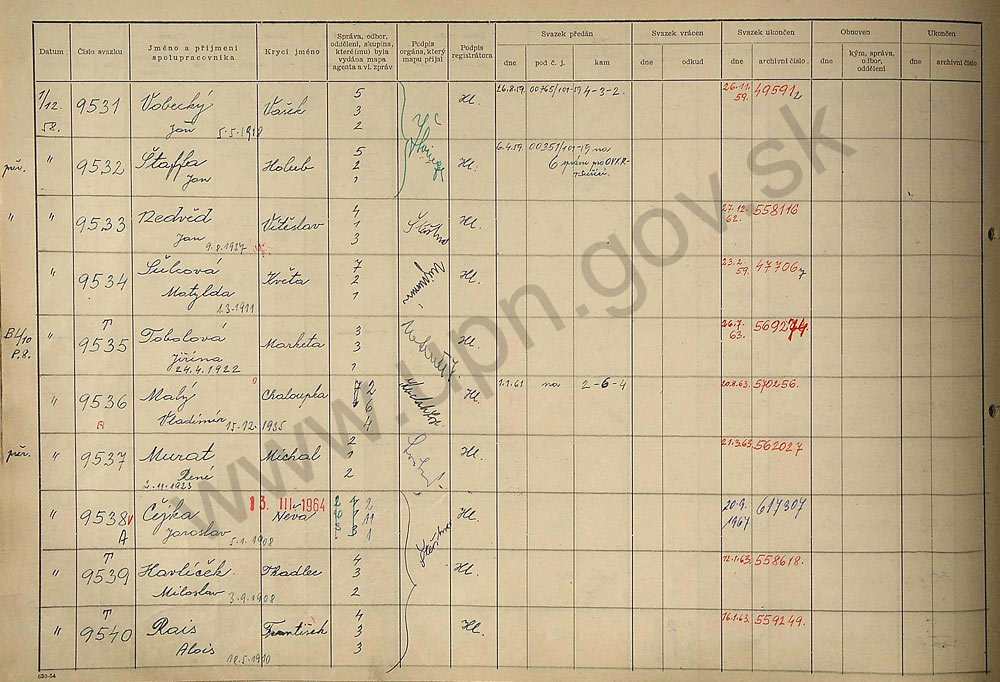 Datum
Číslo svazku
Jméno a příjmení
spolupracovníka
Krycí jméno
Správa, odbor,
oddělení, skupina,
které(mu) byla
vydána mapa
agenta a vl. zpráv
Podpis
orgána, který
mapu přijal
Podpis
registrátora
Svazek předán
dne
pod č. j.
kam
Svazek vrácen
dne
odkud
Svazek ukončen
dne
archivní číslo
Obnoven
dne
kým, správa,
odbor,
oddělení
Ukončen
dne
archivní číslo
1/12.
58.
9531
Vobecký
Jan
5.5.1918
Vašek
5
3
2
Hl.
26.8.59.
00765/101-59
4-3-2.
26.11.
59.
49591
2
přer.
"
9532
Štaffa
Jan
Holub
5
2
1
Hl.
6.4.59.
00351/101-59
na
6 správu pro OVKR-
"
"
9533
Nedvěd
Jan
9.8.1927
Vítěslav
4
1
3
Šťastný
Hl.
27.12.
62.
558116
"
9534
Šulcová
Matylda
1.3.1911
Květa
7
2
1
Hl.
23.2.
59.
47706
7
B4/10
P.8.
"
T
9535
Tobolová
Jiřina
24.4.1922
Marketa
3
3
1
Hl.
26.7.
63.
569274.
"
9536
A
Malý
Vladimír
15.12.1935
Chaloupka
7 2
6
4
Hl.
1.1.61
na
2-6-4
20.8.63.
570256.
přer.
"
9537
Murat
René
2.11.1923
Michal
2
1
2
Hl.
21.3.63.
562027
"
9538
A
Čejka
Jaroslav
5.1.1908
13. III. 1964
Něva
2
11
1
Hl.
20.9.
1967
617307
"
T
9539
Havlíček
Miloslav
3.9.1908
Thadlec
4
3
2
Šťastný
Hl.
12.1.63.
558618.
"
T
9540
Rais
Alois
18.5.1910
František
4
3
3
Hl.
16.1.63.
559249.
www.upn.gov.sk